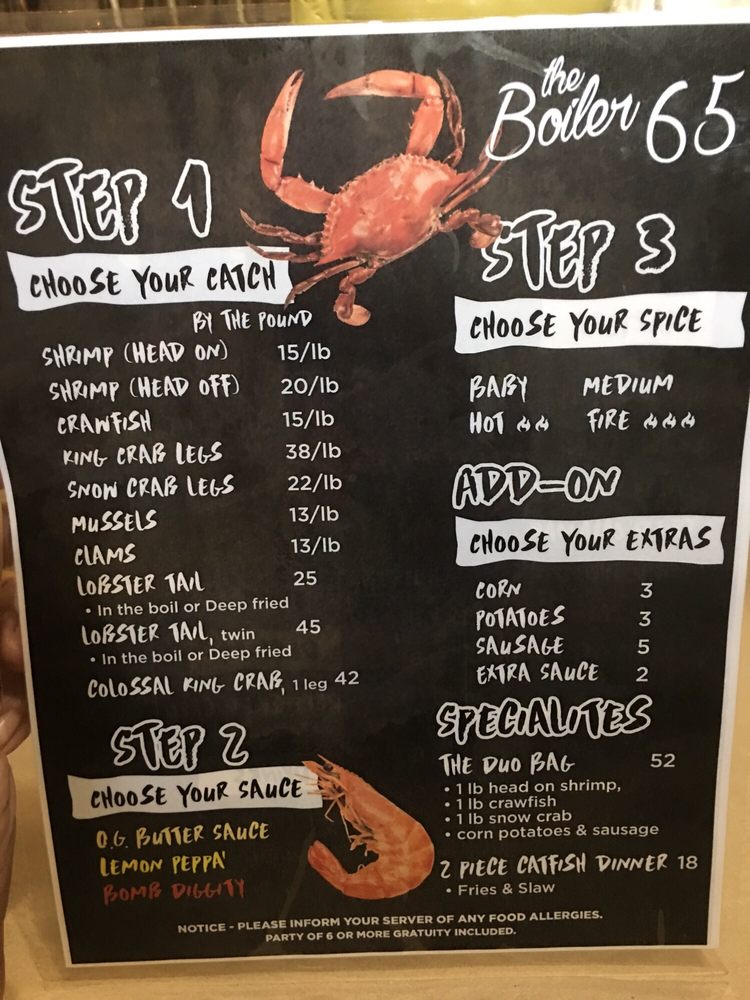 the
Boiler 65
STEP 1
CHOOSE YOUR CATCH
BY THE POUND
SHRIMP (HEAD ON) 15/lb
SHRIMP (HEAD OFF) 20/lb
CRAWFISH 15/lb
KING CRAB LEGS 38/lb
SNOW CRAB LEGS 22/lb
MUSSELS 13/lb
CLAMS 13/lb
LOBSTER TAIL 25
• In the boil or Deep fried
LOBSTER TAIL, twin 45
• In the boil or Deep fried
COLOSSAL KING CRAB, 1 leg 42
STEP 2
CHOOSE YOUR SAUCE
O.G. BUTTER SAUCE
LEMON PEPPA'
BOMB DIGGITY
STEP 3
CHOOSE YOUR SPICE
BABY MEDIUM
HOT FIRE
ADD-ON
CHOOSE YOUR EXTRAS
CORN 3
POTATOES 3
SAUSAGE 5
EXTRA SAUCE 2
SPECIALITES
THE DUO BAG 52
• 1 lb head on shrimp,
• 1 lb crawfish
• 1 lb snow crab
• corn potatoes & sausage
2 PIECE CATFISH DINNER 18
• Fries & Slaw
NOTICE - PLEASE INFORM YOUR SERVER OF ANY FOOD ALLERGIES.
PARTY OF 6 OR MORE GRATUITY INCLUDED.